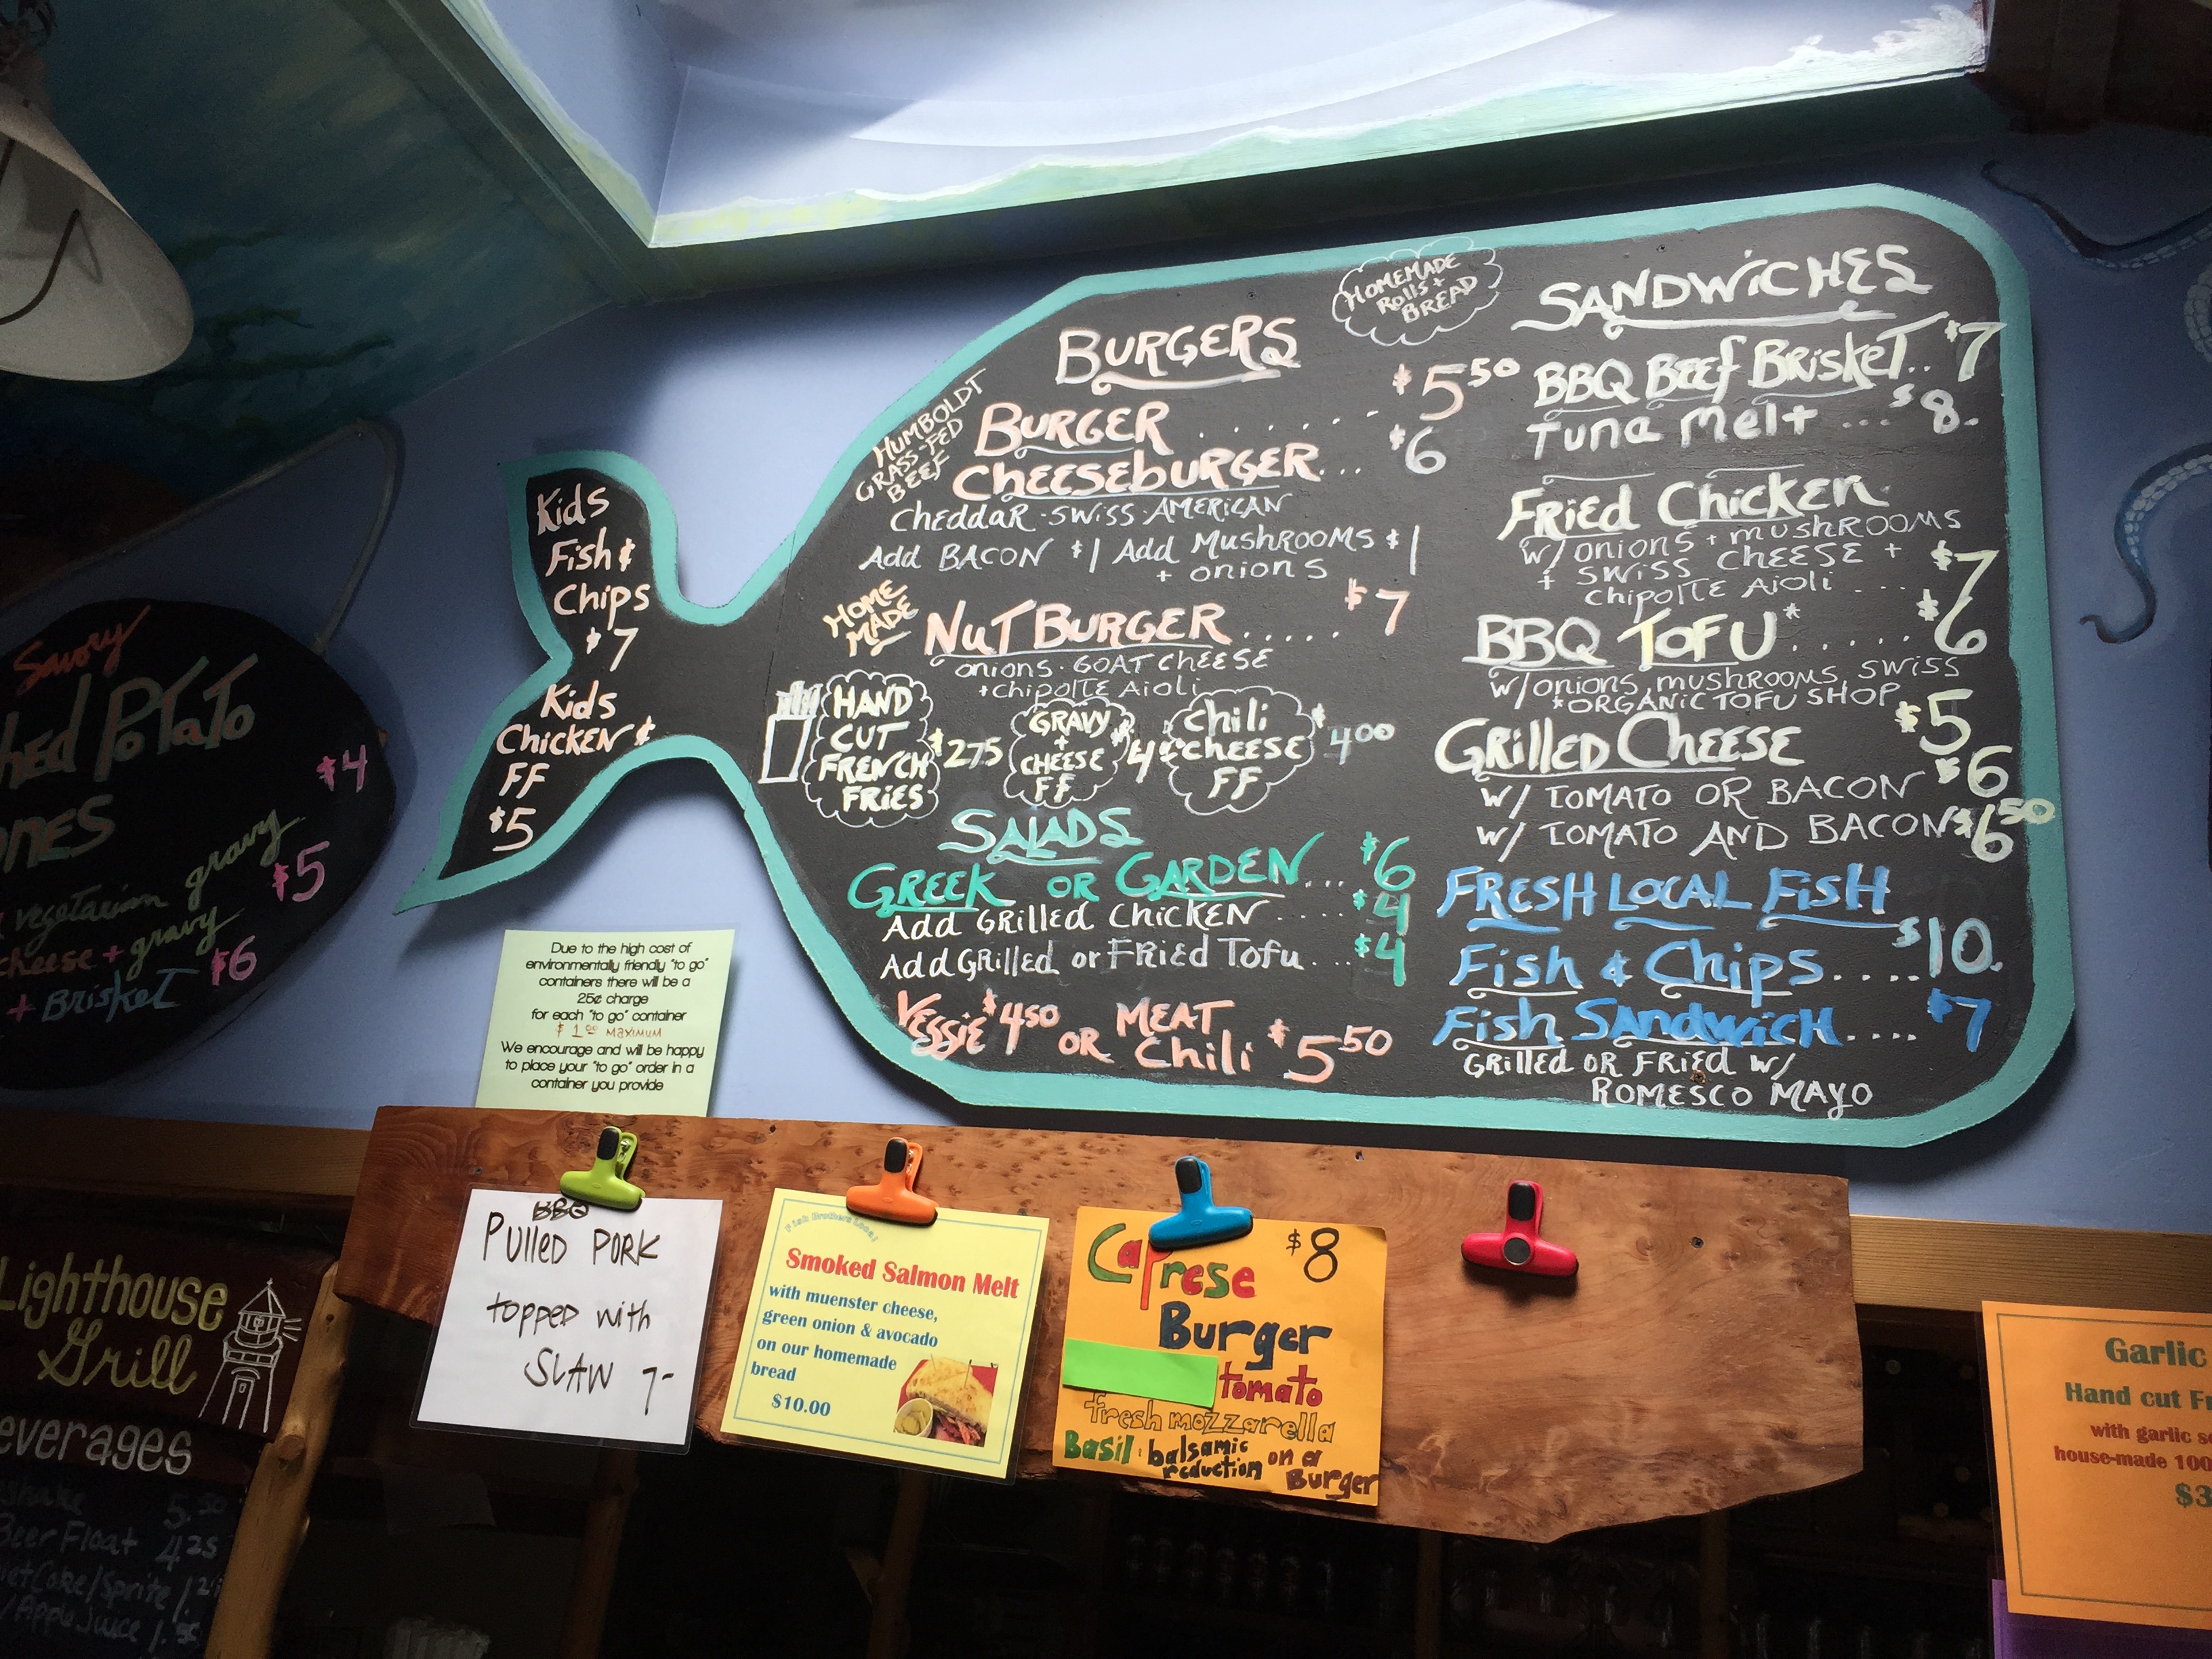 Kids
Fish &
Chips
$7
Kids
Chicken &
FF
$5
BURGERS
HOMEMADE
Rolls +
BREAD
HUMBOLDT
GRASS-FED
BEEF
BURGER . . . . . . - $5 50
CHEESEBURGER... $6
CHEDDAR · SWISS · AMERICAN
Add BACON $1 Add MUSHROOMS $1
+ ONIONS
HOME
MADE
NUT BURGER ..... $7
ONIONS · GOAT CHEESE
+ CHIPOLTE AIOLI
HAND
CUT
FRENCH
FRIES
$275
GRAVY
+
CHEESE
FF
Chili
CHEESE
FF
$400
SALADS
GREEK OR GARDEN... $6
Add GRILLED CHICKEN .... $4
Add GRILLED or FRIED TOFU... $4
VEGGIE $450 OR MEAT
Chili $5 50
SANDWICHES
BBQ BEEF BRISKET.. $7
Tuna Melt ... $8.
FRIED CHICKEN
w/ ONIONS + MUSHROOMS
+ SWISS CHEESE +
CHIPOLTE AIOLI ... $7
BBQ TOFU* ..... $6
w/ONIONS, MUSHROOMS, SWISS
*ORGANIC TOFU SHOP
GRILLED CHEESE $5
w/ TOMATO OR BACON $6
w/ TOMATO AND BACON $6 50
FRESH LOCAL FISH
Fish & Chips.... $10.
Fish SANDWICH.... $7
GRILLED OR FRIED w/
ROMESCO MAYO
Savory
PoTaTo
$4
vegetarian gravy
$5
cheese + gravy
+ BRISKET $6
Due to the high cost of
environmentally friendly "to go"
containers there will be a
25¢ charge
for each "to go" container
$ 1 00 MAXIMUM
We encourage and will be happy
to place your "to go" order in a
container you provide
BBQ
Pulled PORK
topped with
SLAW 7-
Fish Brothers Local
Smoked Salmon Melt
with muenster cheese,
green onion & avocado
on our homemade
bread
$10.00
Caprese $8
Burger
tomato
fresh mozzarella
Basil · balsamic
reduction on a
Burger
Lighthouse
Grill
everages
5.50
Beer Float 4 25
Coke/Sprite
Apple Juice
Garlic
Hand cut
with garlic
house-made 100
$3